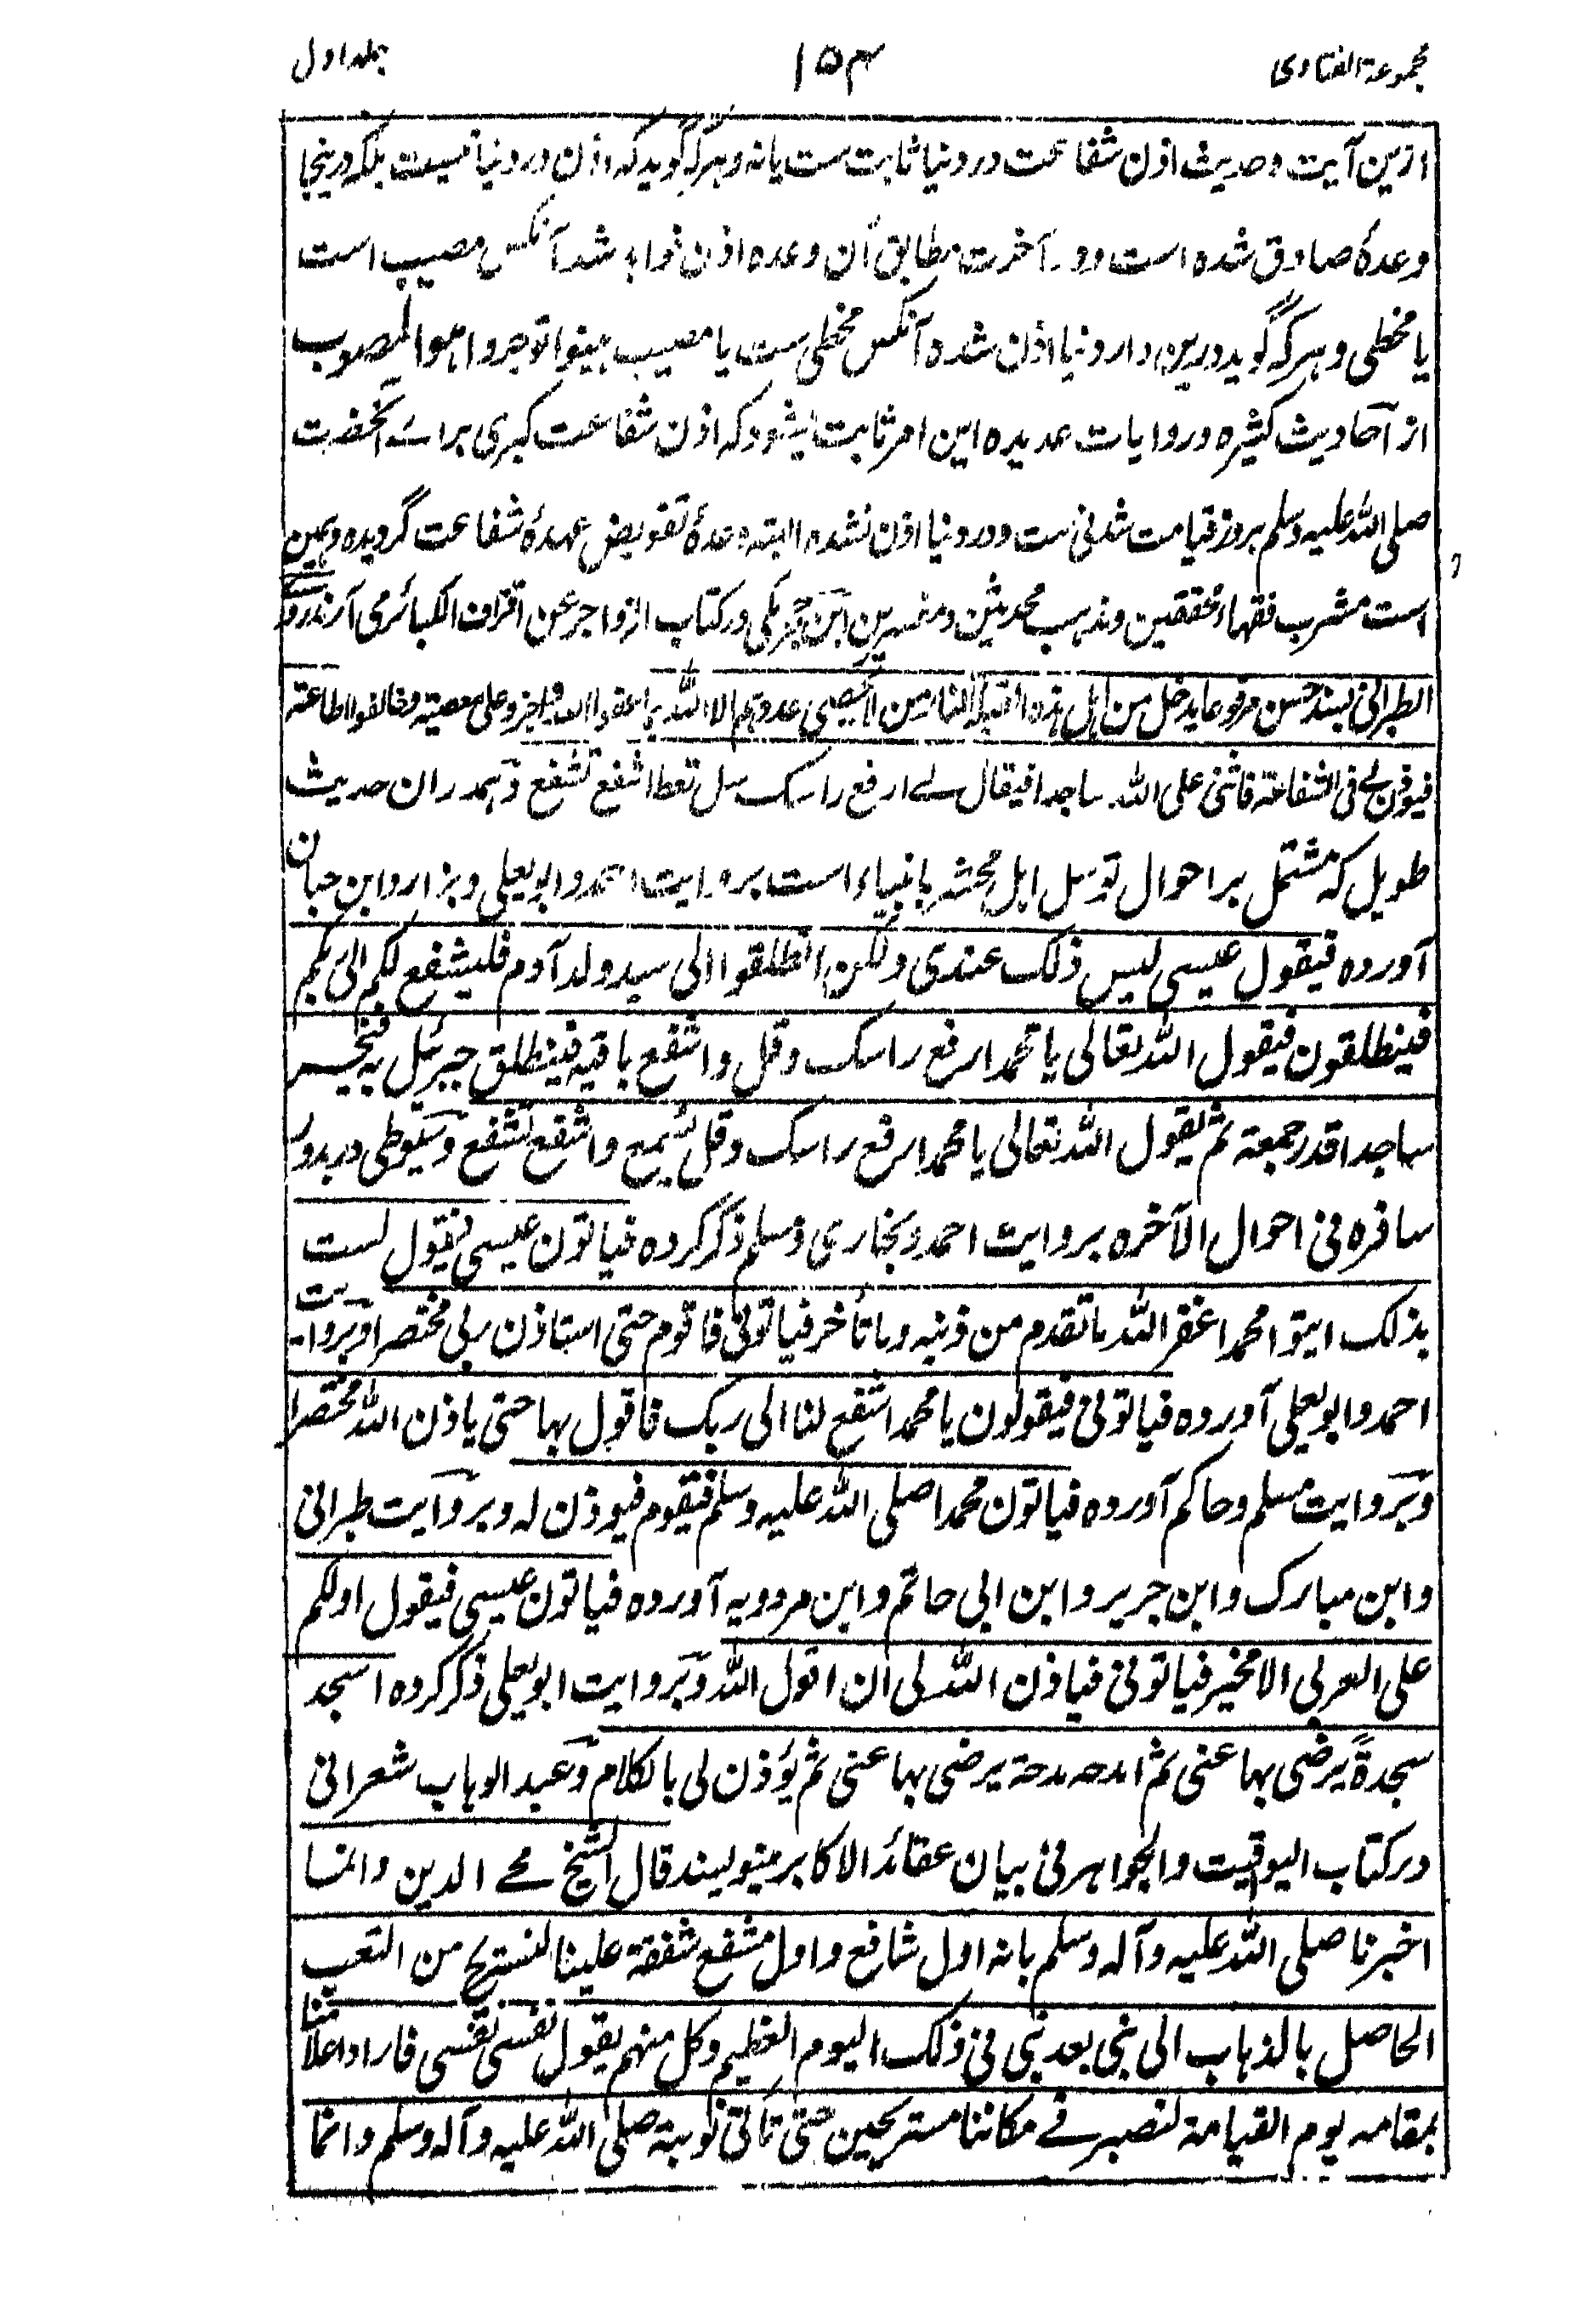 مجموعة الفتاوی ۱۵۴ جلد اول
ازین آیت و حدیث اذن شفاعت در دنیا ثابت ست یا نه و هرکه گوید که اذن در دنیا نیست بلکه درینجا
وعدهٔ صادق شده است و در آخرت مطابق آن وعده اذن خواهد شد آنکس مصیب است
یا مخطی و هرکه گوید درین دار دنیا اذن شده آنکس مخطی ست یا مصیب بینوا توجروا هو المصوب
از آحادیث کثیره و روایات عدیده این امر ثابت میشود که اذن شفاعت کبری برائے آنحضرت
صلی الله علیه وسلم بروز قیامت شدنی ست و در دنیا اذن نشده البته وعدهٔ تفویض عهدهٔ شفاعت گردیده و همین
است مشرب فقهاء محققین و مذهب محدثین و مفسرین ابن حجر مکی در کتاب الزواجر عن اقتراف الکبائر می آرند روی
الطبرانی بسند حسن مرفوعا یدخل من اهل هذه القبلة النار من لا یحصی عددهم الا الله بما عصوا الله واجترؤا علی معصیته وخالفوا طاعته
فیوذن لے فی الشفاعة فاثنی علی الله ساجدا فیقال لے ارفع راسک سل تعط اشفع تشفع و همدران حدیث
طویل که مشتمل بر احوال توسل اهل محشر بانبیاء است بروایت احمد و ابو یعلی و بزار و ابن حبان
آورده فیقول عیسی لیس ذلک عندی ولکن انطلقوا الی سید ولد آدم فلیشفع لکم الی ربکم
فینطلقون فیقول الله تعالی یا محمد ارفع راسک وقل واشفع باقیه فینطلق جبرئیل به فیخر
ساجدا قدر جمعة ثم یقول الله تعالی یا محمد ارفع راسک وقل تسمع واشفع تشفع و سیوطی در بدور
سافره فی احوال الآخره بروایت احمد و بخاری و مسلم ذکر کرده فیاتون عیسی فیقول لست
بذلک ایتوا محمدا غفر الله ما تقدم من ذنبه وما تأخر فیاتونی فاقوم حتی استاذن ربی مختصرا و بروایت
احمد و ابو یعلی آورده فیاتونی فیقولون یا محمد اشفع لنا الی ربک فاقول بها حتی یاذن الله مختصرا
و بروایت مسلم و حاکم آورده فیاتون محمدا صلی الله علیه وسلم فیقوم فیوذن له و بروایت طبرانی
و ابن مبارک و ابن جریر و ابن ابی حاتم و ابن مردویه آورده فیاتون عیسی فیقول اولکم
علی العربی الا مخیر فیاتونی فیاذن الله لی ان اقول الله و بروایت ابو یعلی ذکر کرده اسجد
سجدةً یرضی بها عنی ثم امدحه مدحة یرضی بها عنی ثم یؤذن لی بالکلام و عبد الوهاب شعرانی
در کتاب الیوقیت والجواهر فی بیان عقائد الاکابر مینویسند قال الشیخ محے الدین وانما
اخبرنا صلی الله علیه وآله وسلم بانه اول شافع واول مشفع شفقة علینا لنستریح من التعب
الحاصل بالذهاب الی نبی بعد نبی فی ذلک الیوم العظیم وکل منهم یقول نفسی نفسی فاراد اعلامنا
بمقامه یوم القیامة لنصبر فے مکاننا مستریحین حتی تأتی نوبته صلی الله علیه وآله وسلم وانما